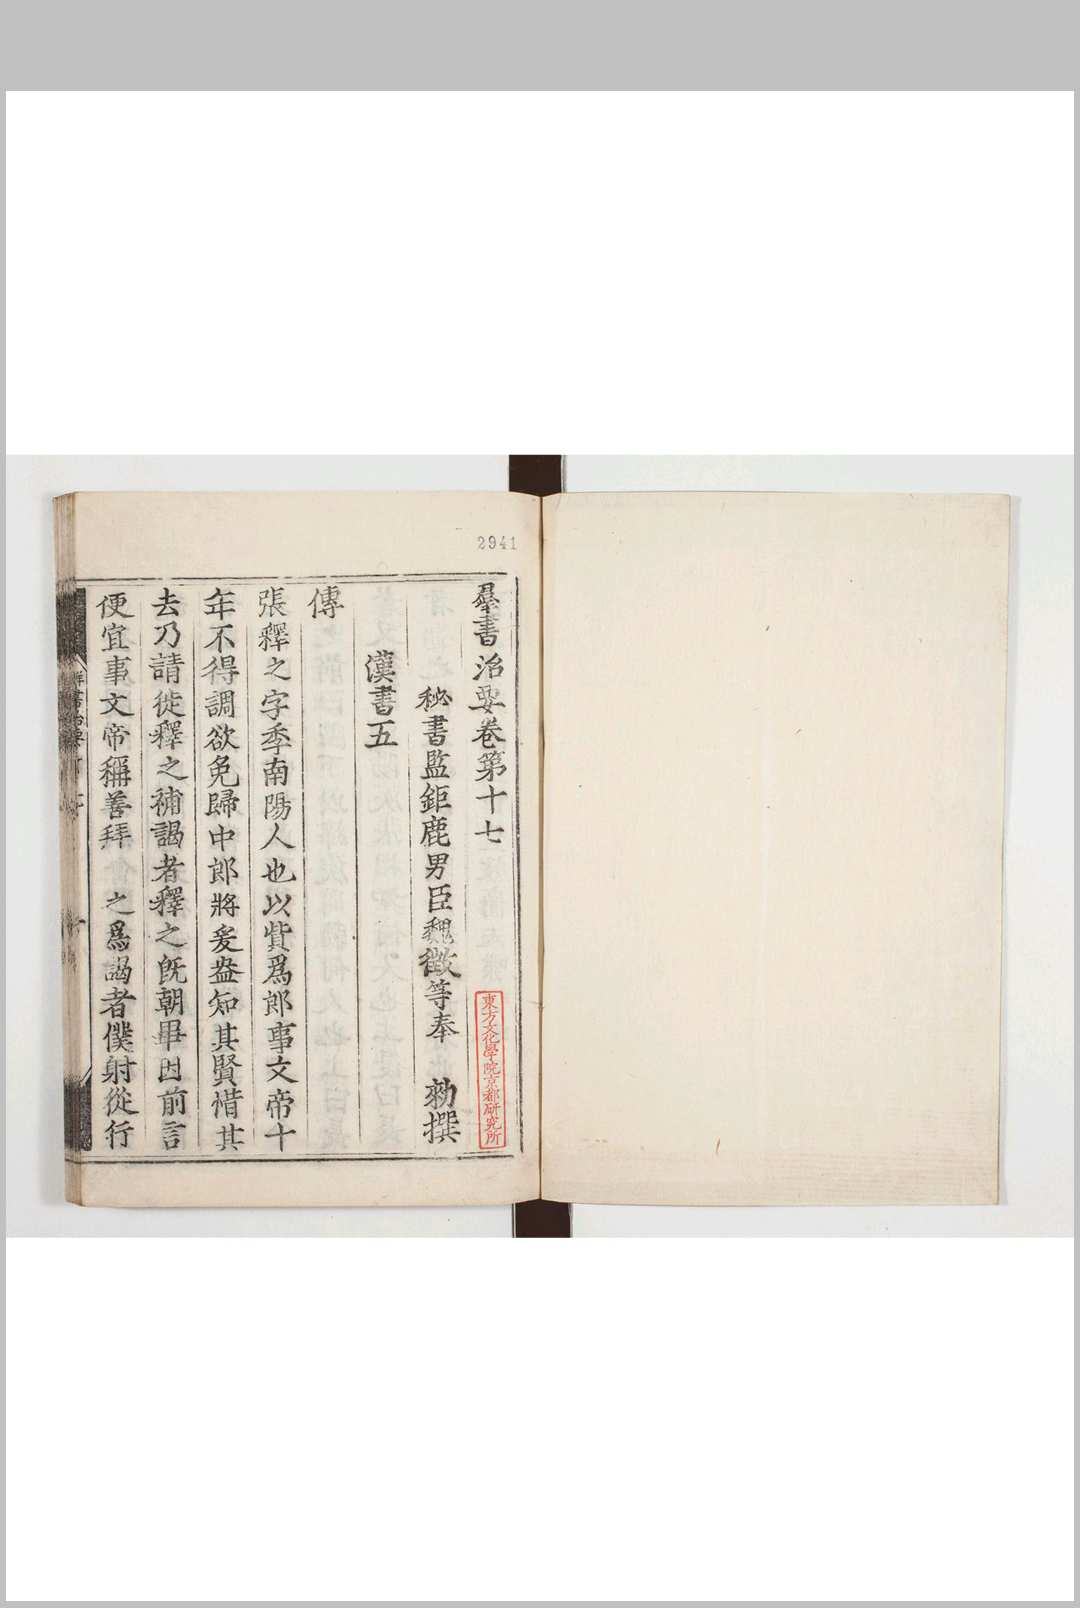 2941
羣書治要卷第十七
秘書監鉅鹿男臣魏徵等奉 勑撰
漢書五
傳
張釋之字季南陽人也以貲爲郎事文帝十
年不得調欲免歸中郎將爰盎知其賢惜其
去乃請徙釋之補謁者釋之既朝畢因前言
便宜事文帝稱善拜 之爲謁者僕射從行
群書治要
東方文化學院京都研究所